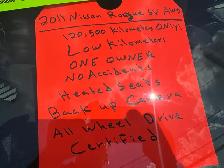 2011 Nissan Rogue SV AWD
120,500 Kilometers ONLY!
Low Kilometers
ONE OWNER
No Accidents
Heated Seats
Back up Camera
All Wheel Drive
Certified